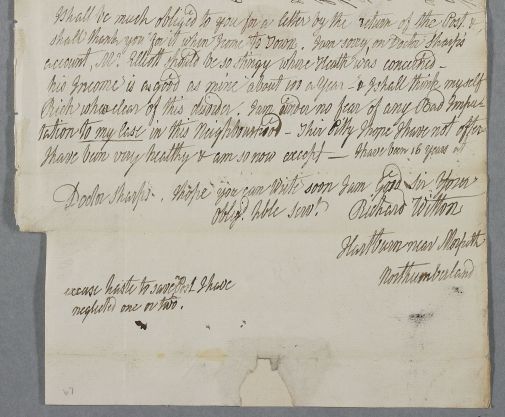 I shall be much obliged to you for a letter by the return of the Post, &
shall thank you for it when I come to Town. I am sorry on Doctor Sharp's
account, Mr. Elliott should be so stingy where Health was concerned -
his Income is as good as mine about 100 a Year - & I shall think myself
Rich when clear of this disorder. I am under no fear of any Bad Impu-
tation to my Case in this Neighbourhood - This Pitty I hope I have not offer
I have been very healthy & am so now except - I have been 16 years at
Doctor Sharps -. I hope you can Write soon I am Good Sir Your
Oblig'd. Hble Servt. Richard Witton
Hartburn near Morpeth
Northumberland
excuse haste to save Post I have
neglected one or two.